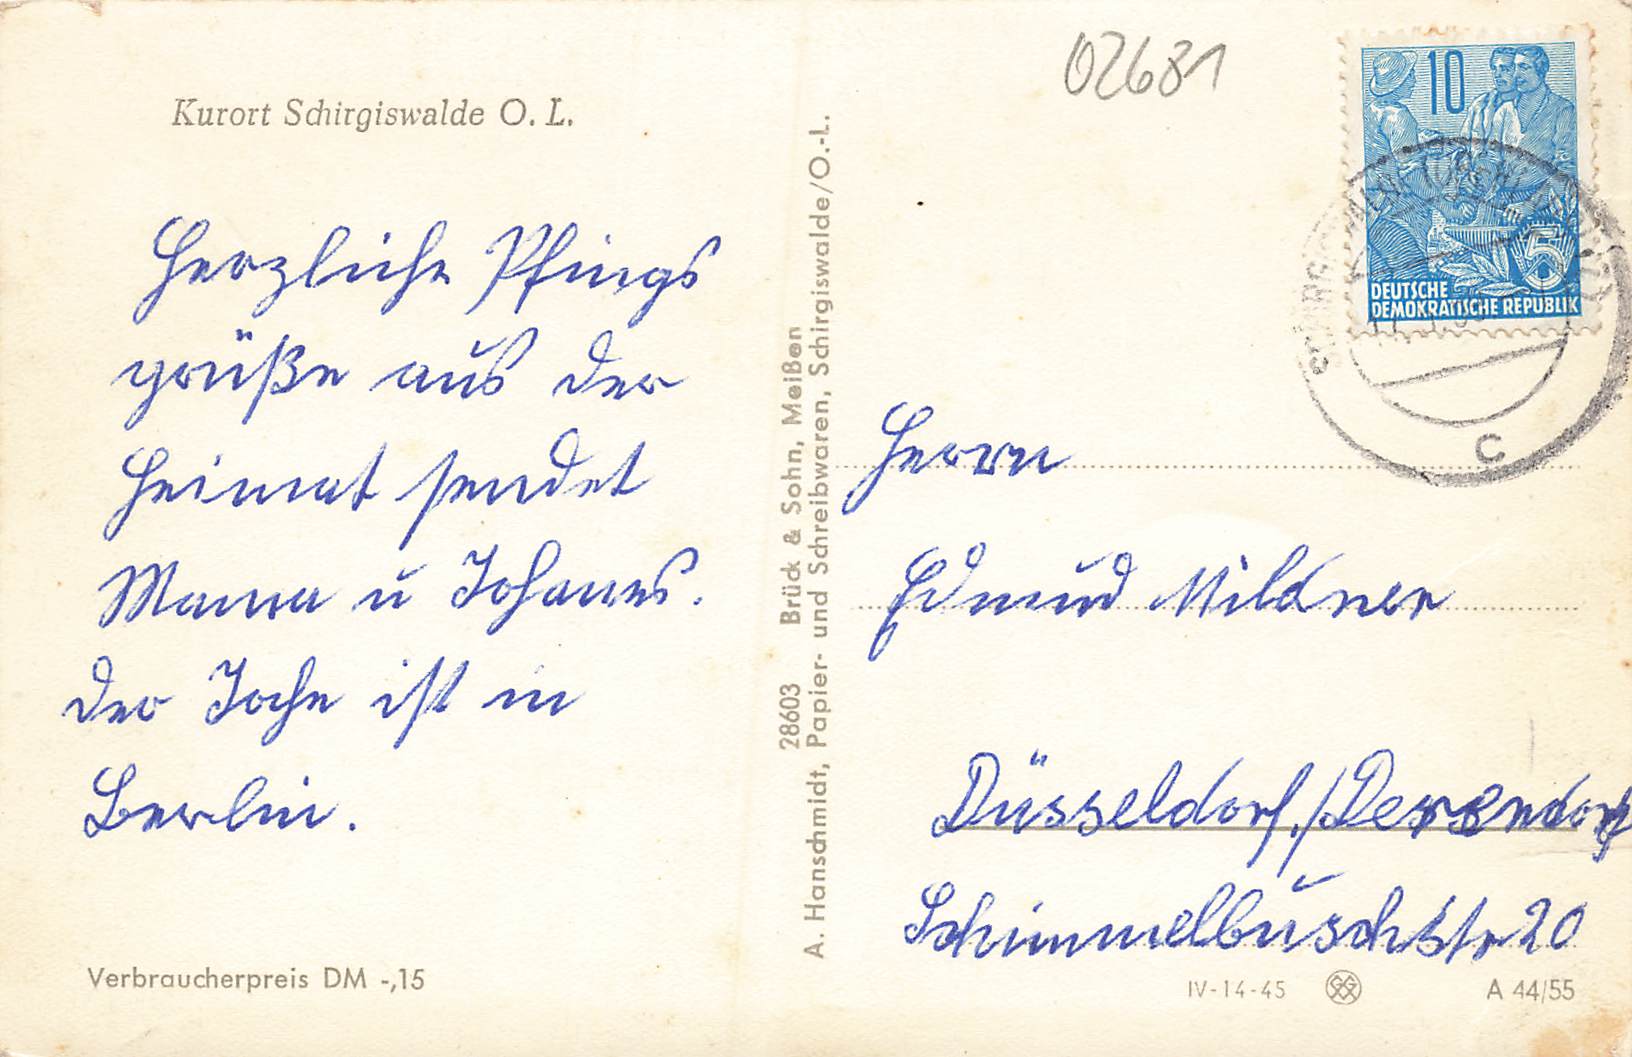 Kurort Schirgiswalde O. L.
Herzliche Pfings
grüße aus der
Heimat sendet
Mama u Johanes.
der Joche ist in
Berlin.
Verbraucherpreis DM -,15
28603 Brück & Sohn, Meißen
A. Hanschmidt, Papier- und Schreibwaren, Schirgiswalde/O.-L.
02681
10
5
DEUTSCHE
DEMOKRATISCHE REPUBLIK
c
Herrn
Edmund Mildner
Düsseldorf./Derendorf
Schimmelbuschstr 20
IV-14-45
A 44/55